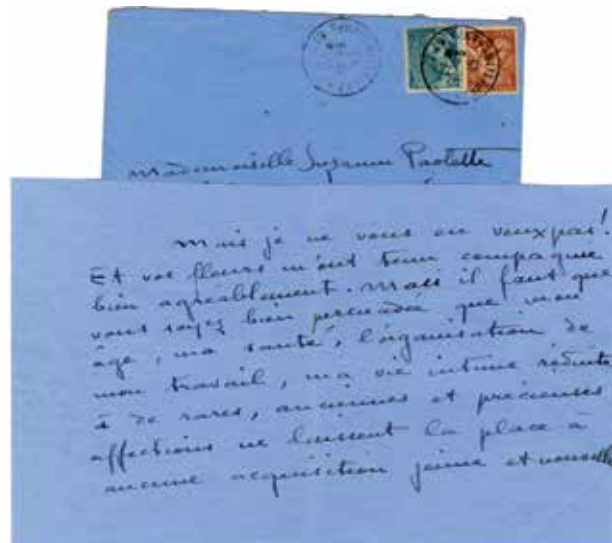 Mademoiselle Suzanne Paolette
Mais je ne vous en veux pas!
Et vos fleurs m'ont tenu compagnie
bien agréablement. Mais il faut que
vous soyez bien persuadée que mon
âge, ma santé, l'organisation de
mon travail, ma vie intime réduite
à de rares, anciennes et précieuses
affections ne laissent la place à
aucune acquisition jeune et nouvelle